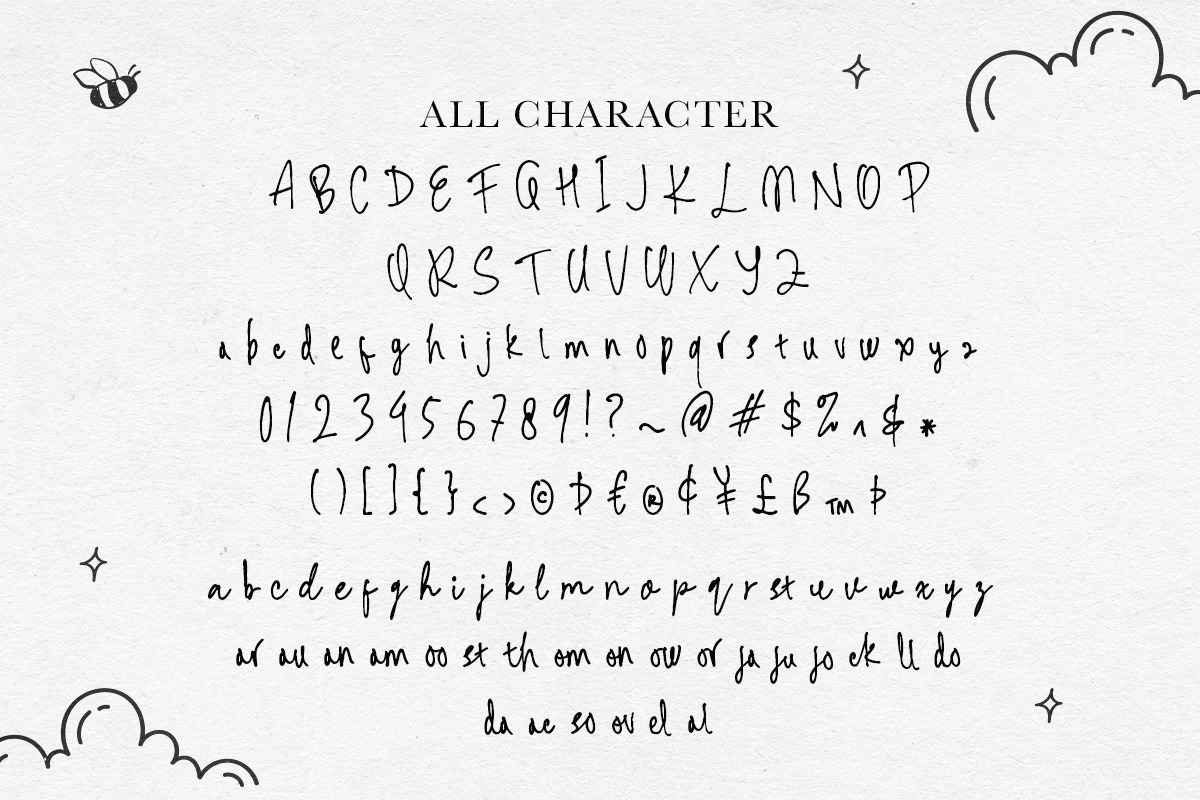 ALL CHARACTER
A B C D E F G H I J K L M N O P
Q R S T U V W X Y Z
a b c d e f g h i j k l m n o p q r s t u v w x y z
0 1 2 3 4 5 6 7 8 9 ! ? ~ @ # $ % ^ & *
( ) [ ] { } < > © Đ € ® ¢ ¥ £ ß ™ Þ
a b c d e f g h i j k l m n o p q r st u v w x y z
ar au an am oo st th om on ow or ja ju jo ck ll do
da ac so ov el al